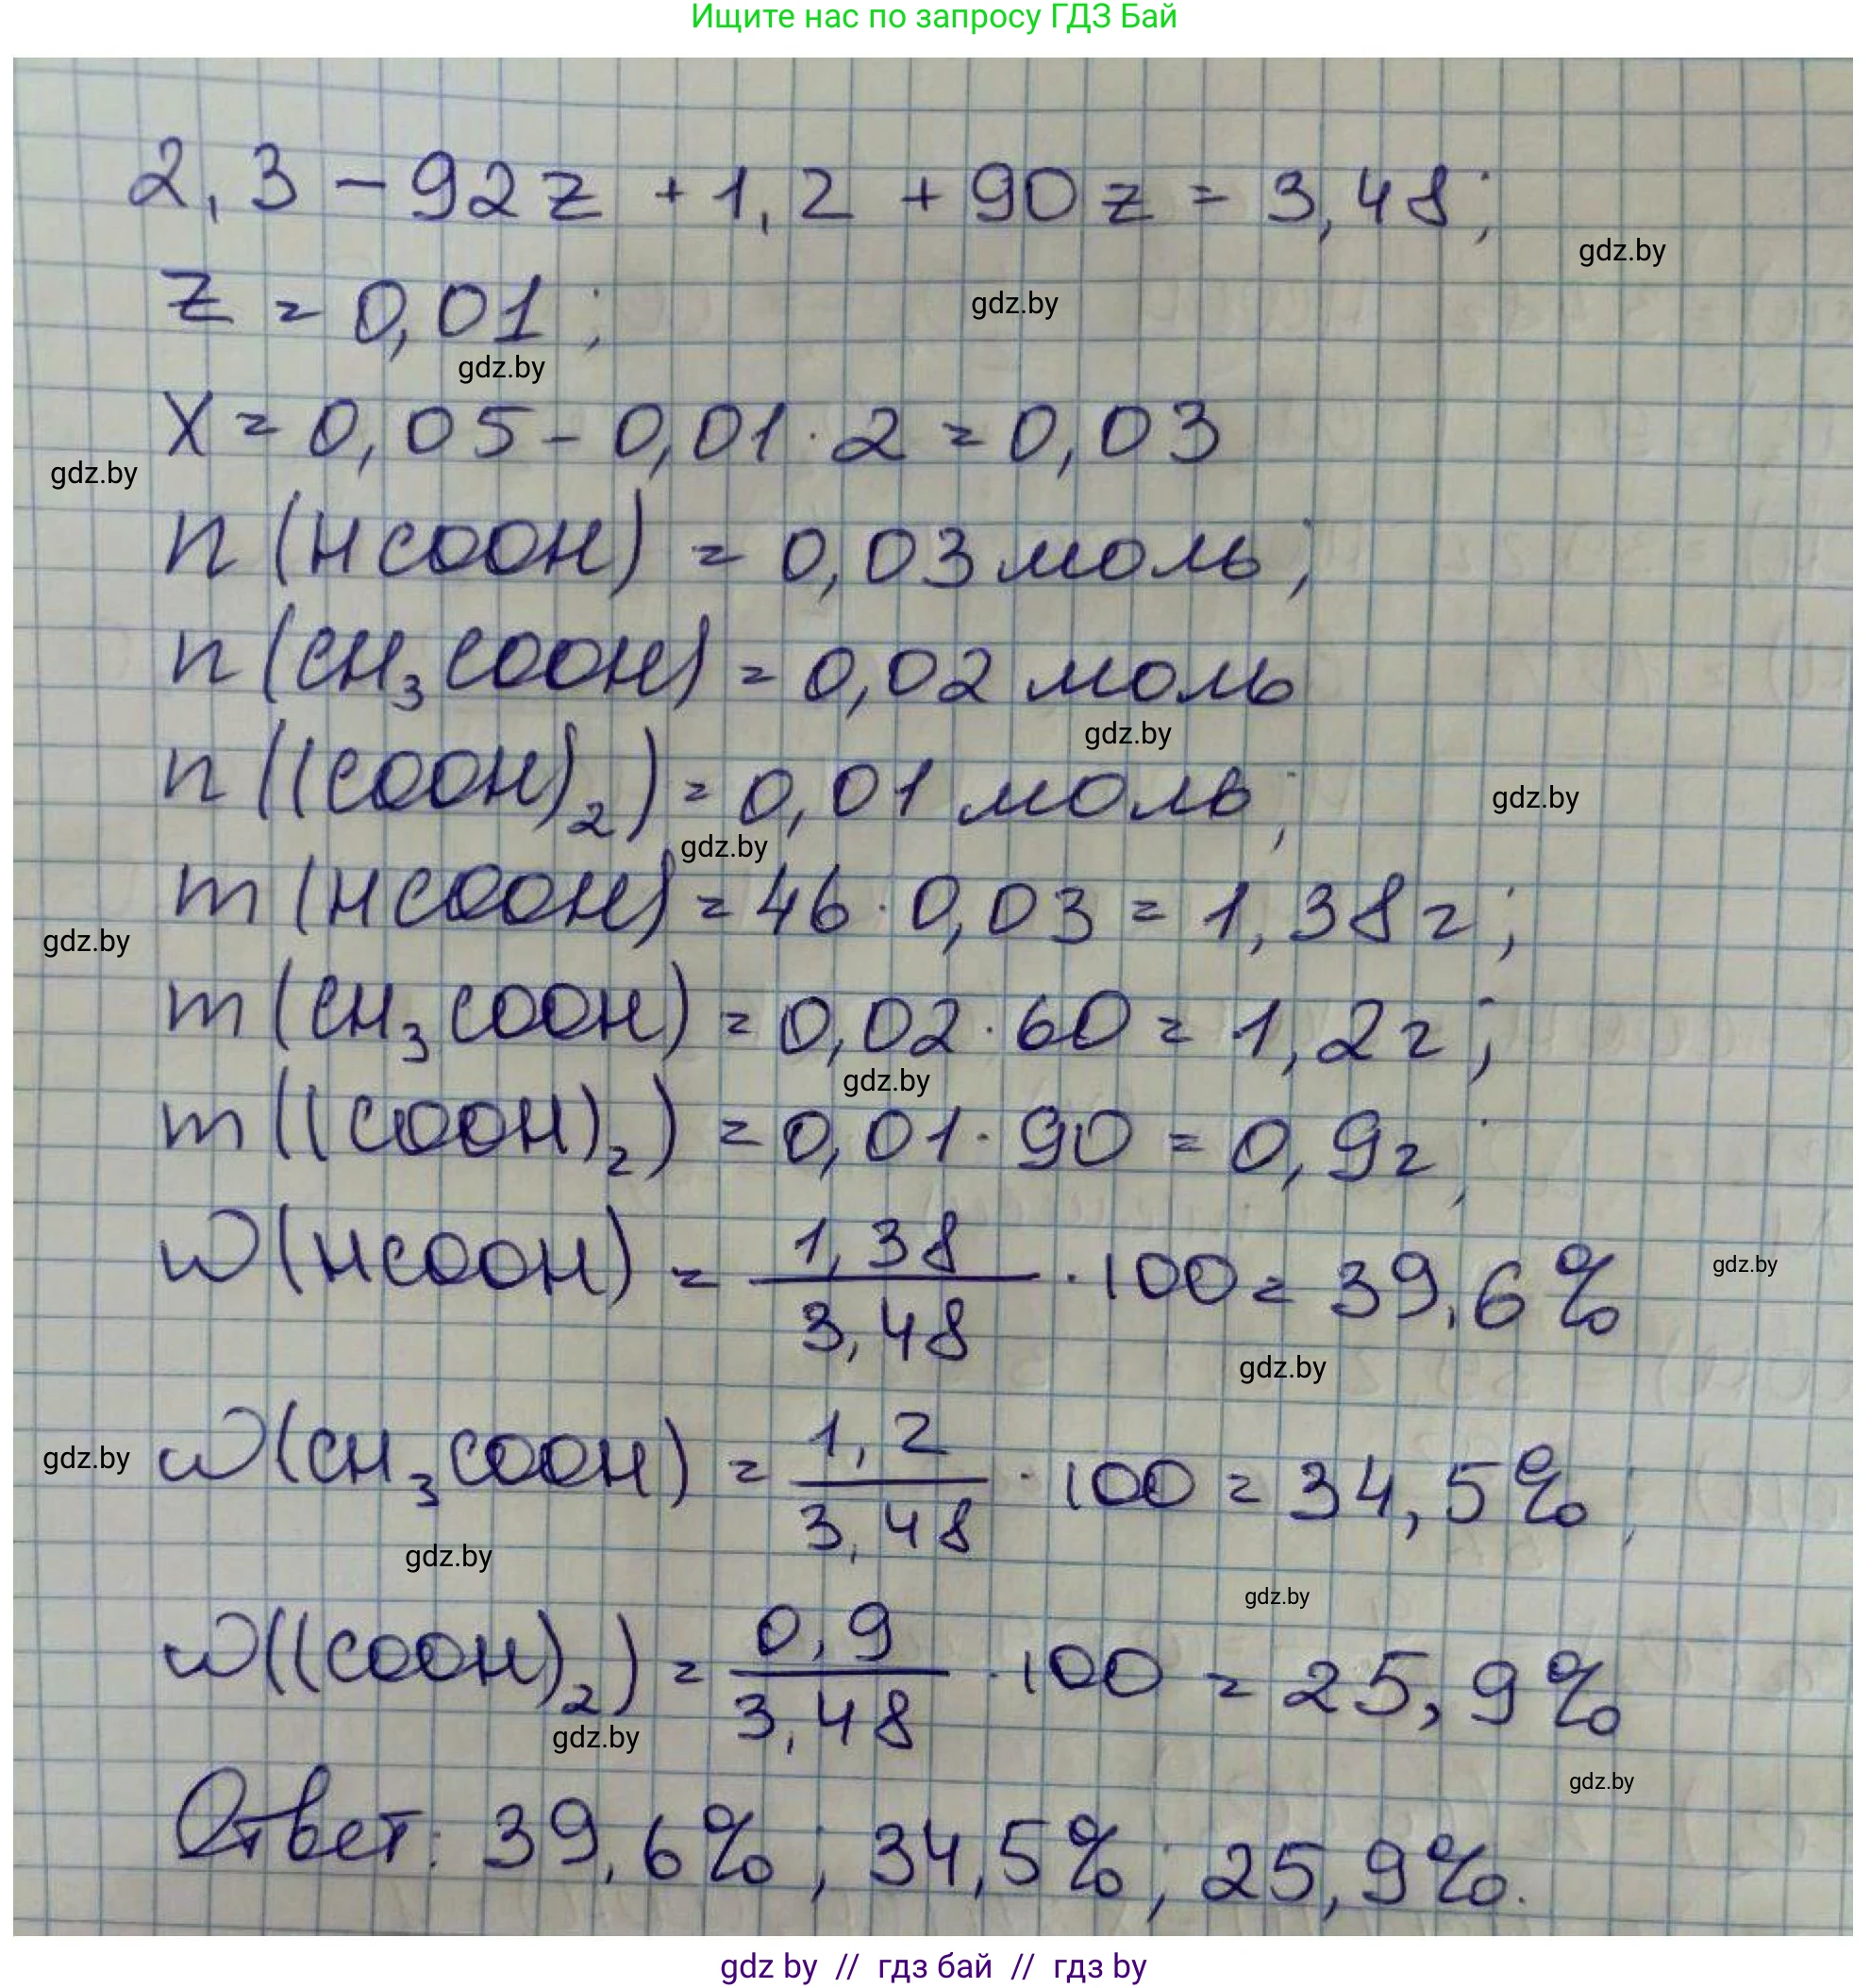 Ищите нас по запросу ГДЗ Бай
2,3 - 92z + 1,2 + 90z = 3,48;
gdz.by
z = 0,01;
gdz.by
gdz.by
x = 0,05 - 0,01 · 2 = 0,03
gdz.by
n(HCOOH) = 0,03 моль;
n(CH₃COOH) = 0,02 моль
gdz.by
n((COOH)₂) = 0,01 моль;
gdz.by
gdz.by
m(HCOOH) = 46 · 0,03 = 1,38 г;
gdz.by
m(CH₃COOH) = 0,02 · 60 = 1,2 г;
gdz.by
m((COOH)₂) = 0,01 · 90 = 0,9 г;
w(HCOOH) = 1,38 / 3,48 · 100 = 39,6%
gdz.by
gdz.by
w(CH₃COOH) = 1,2 / 3,48 · 100 = 34,5%;
gdz.by
gdz.by
gdz.by
w((COOH)₂) = 0,9 / 3,48 · 100 = 25,9%
gdz.by
gdz.by
Ответ: 39,6%; 34,5%; 25,9%.
gdz by // гдз бай // гдз by